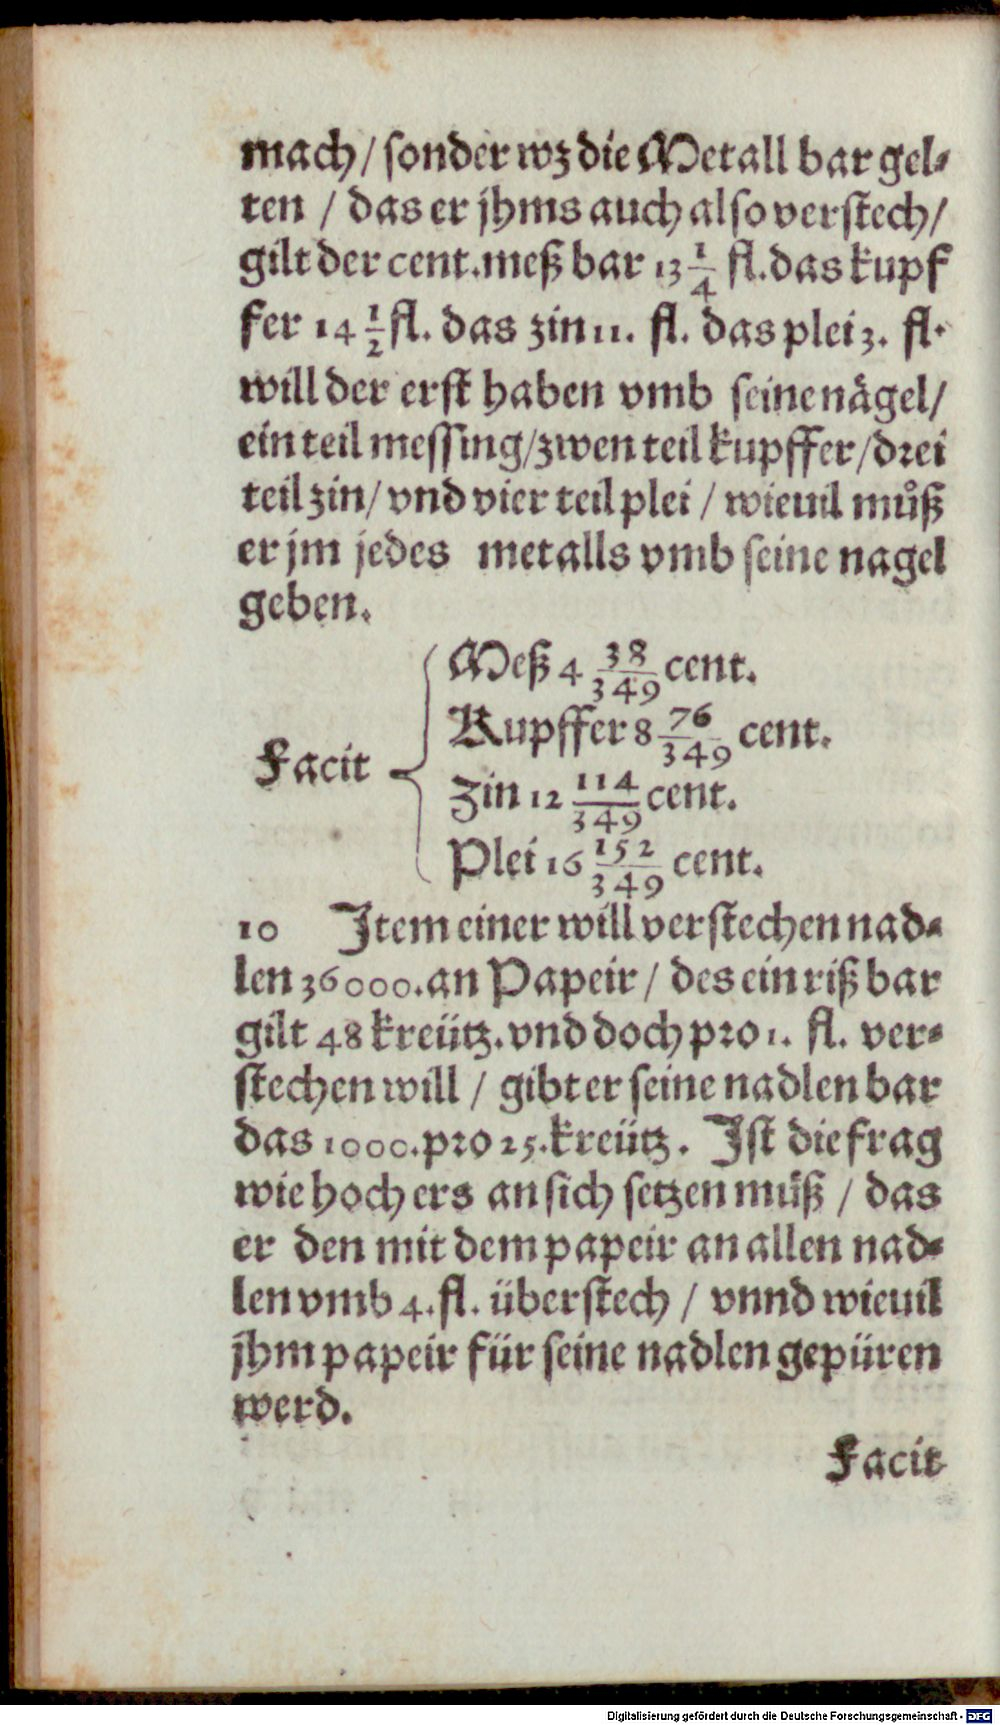 mach / sonder wz die Metall bar gel⸗
ten / das er jhms auch also verstech /
gilt der cent. meß bar 13 1/4 fl. das kupf
fer 14 1/2 fl. das zin 11. fl. das plei 3. fl.
will der erst haben vmb seine nägel /
ein teil messing / zwen teil kupffer / drei
teil zin / vnd vier teil plei / wieuil můß
er jm jedes metalls vmb seine nagel
geben.
Meß 4 38/349 cent.
Kupffer 8 76/349 cent.
Facit
Zin 12 114/349 cent.
Plei 16 152/349 cent.
10 Item einer will verstechen nad⸗
len 36000. an Papeir / des ein riß bar
gilt 48 kreütz. vnd doch pro 1. fl. ver⸗
stechen will / gibt er seine nadlen bar
das 1000. pro 25. kreütz. Ist die frag
wie hoch ers an sich setzen müß / das
er den mit dem papeir an allen nad⸗
len vmb 4. fl. überstech / vnnd wieuil
jhm papeir für seine nadlen gepüren
werd.
Facit
Digitalisierung gefördert durch die Deutsche Forschungsgemeinschaft - DFG